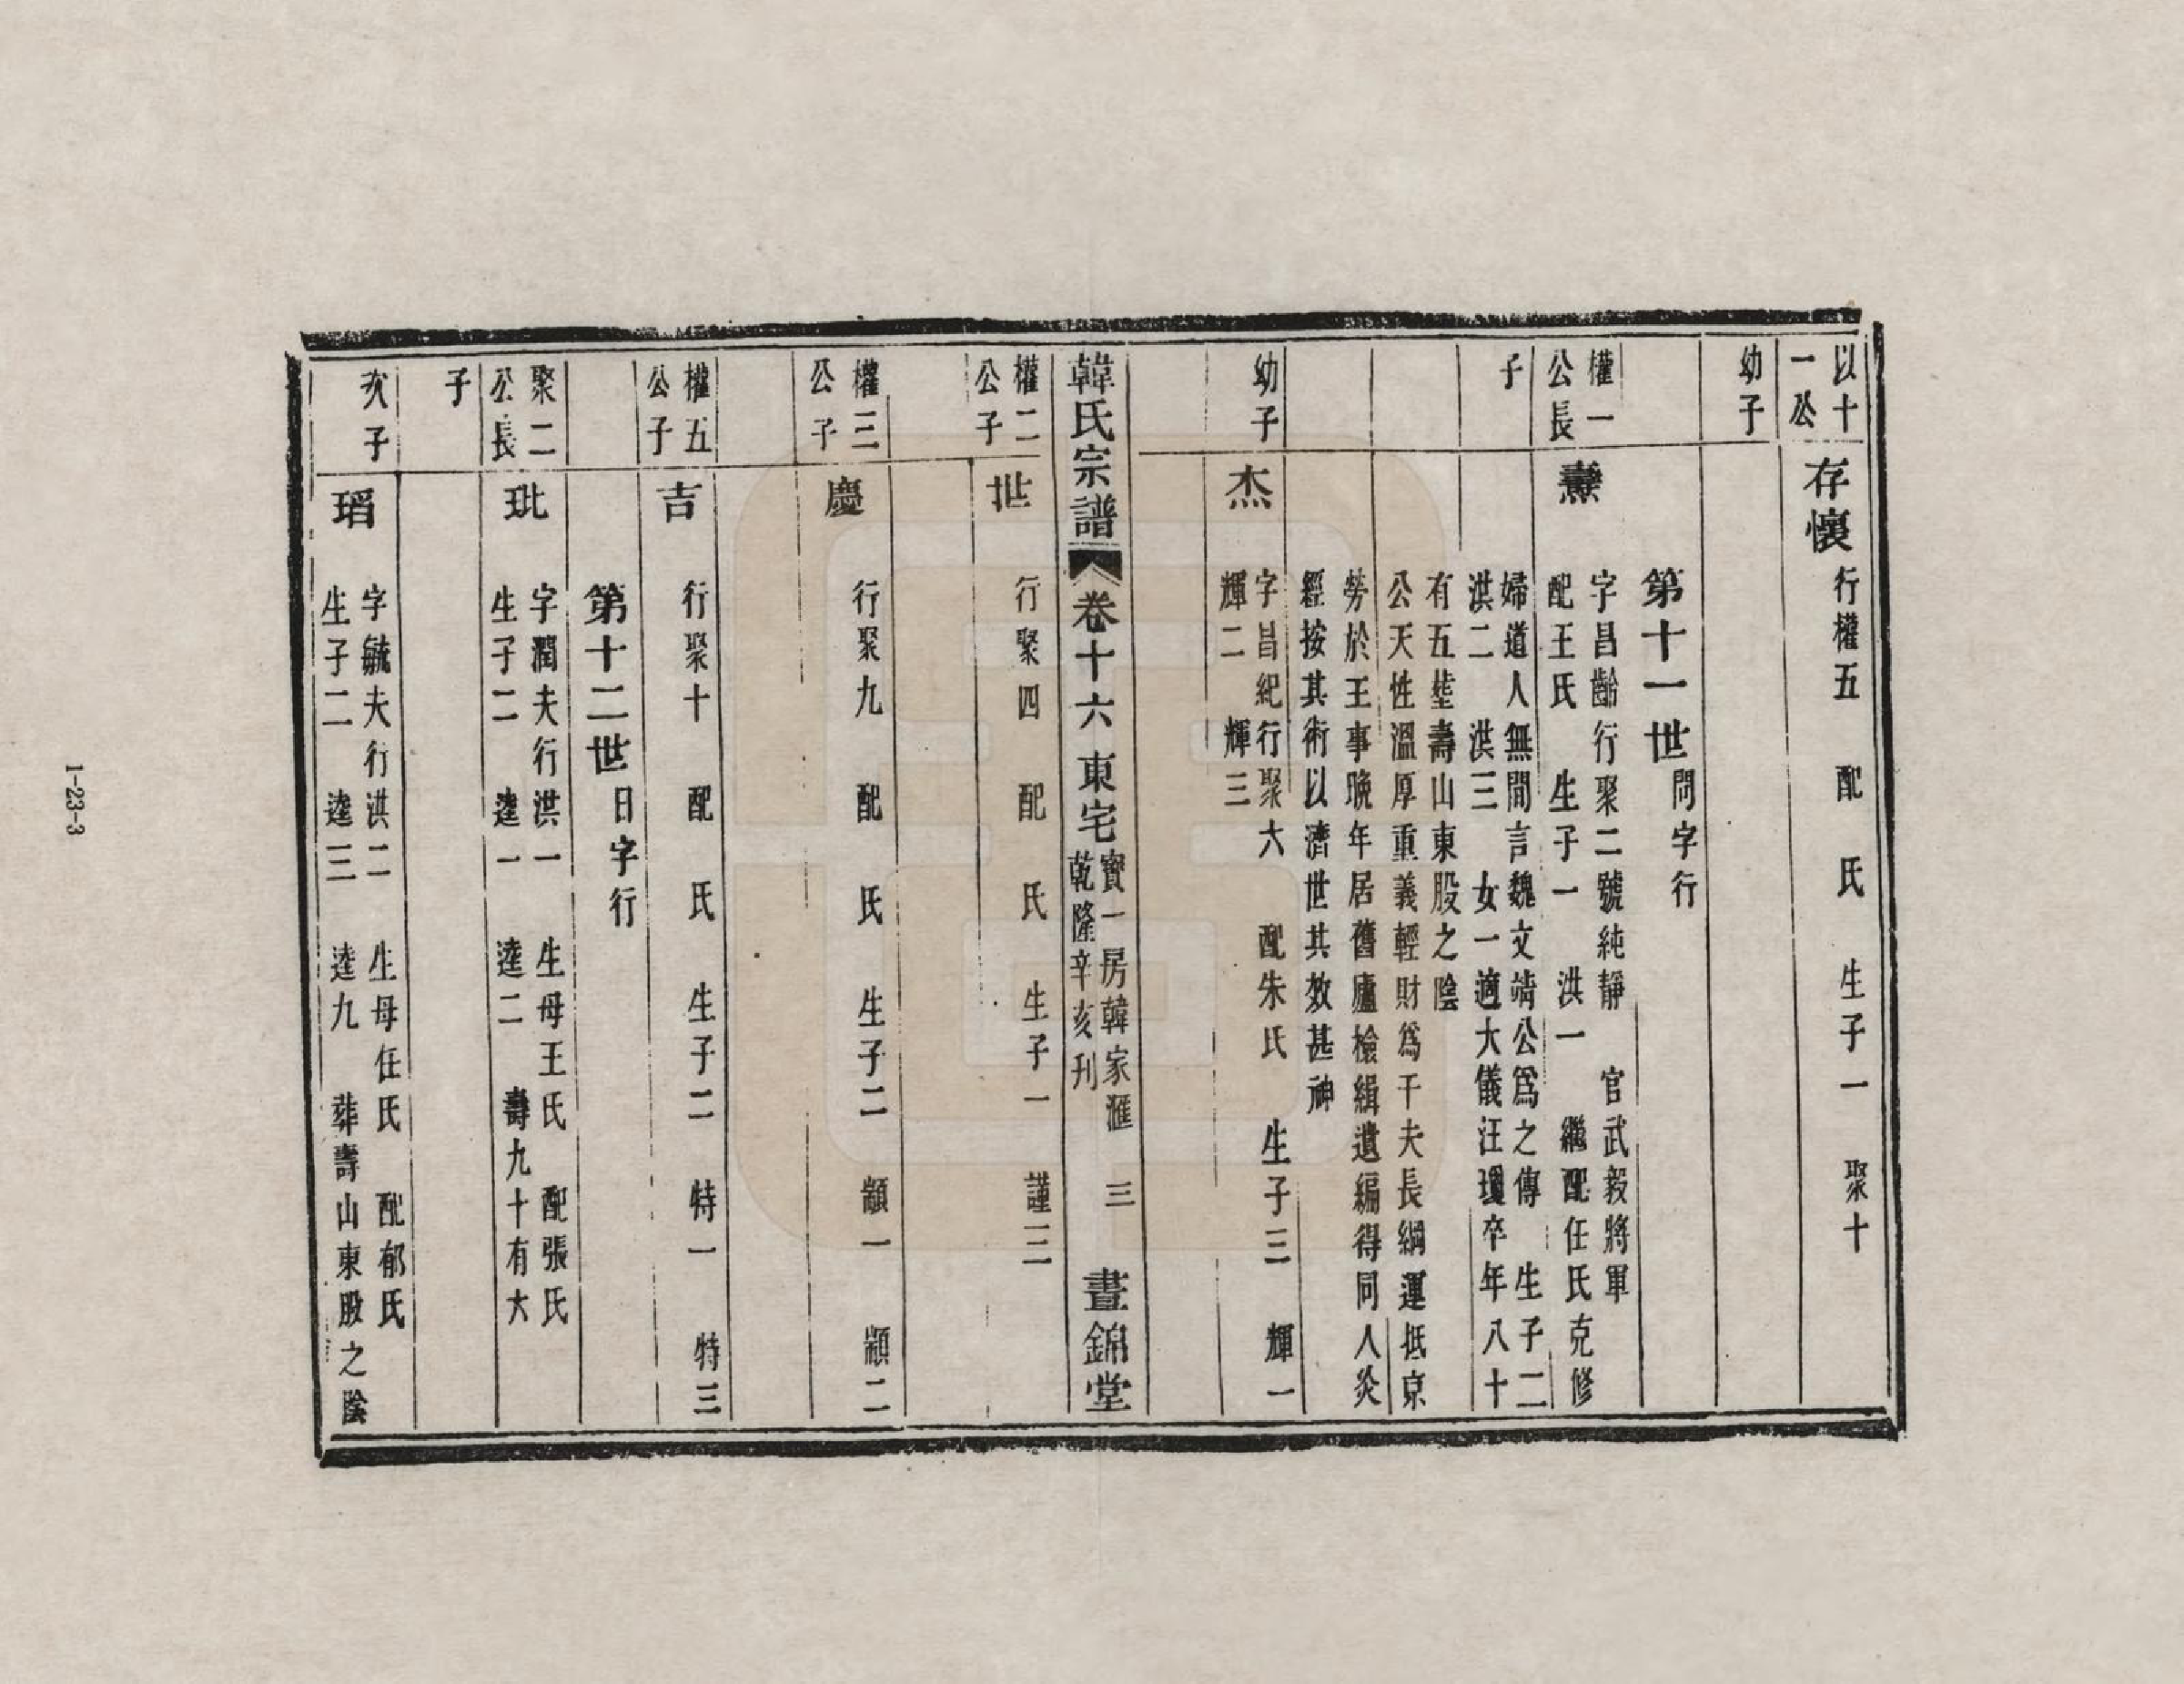 以十
一公
存懷
行權五 配 氏 生子一 聚十
幼子
第十一世
問字行
權一
公長
子
燾
字昌齡行聚二號純靜 官武毅將軍
配王氏 生子一 洪一 繼配任氏克修
婦道人無間言魏文靖公爲之傳 生子二
洪二 洪三 女一適大儀汪瓊卒年八十
有五塟壽山東股之陰
公天性溫厚重義輕財爲千夫長綱運抵京
勞於王事晚年居舊廬檢緝遺編得同人灸
經按其術以濟世其效甚神
幼子
杰
字昌紀行聚六 配朱氏 生子三 輝一
輝二 輝三
韓氏宗譜
卷十六 東宅
寶一房韓家滙 三
乾隆辛亥刊
晝錦堂
權二
公子
世
行聚四 配 氏 生子一 謹三
權三
公子
慶
行聚九 配 氏 生子二 顓一 顓二
權五
公子
吉
行聚十 配 氏 生子二 特一 特三
第十二世
日字行
聚二
公長
子
玭
字潤夫行洪一 生母王氏 配張氏
生子二 逵一 逵二 壽九十有六
次子
瑫
字毓夫行洪二 生母任氏 配郁氏
生子二 逵三 逵九 葬壽山東股之陰
1-23-3